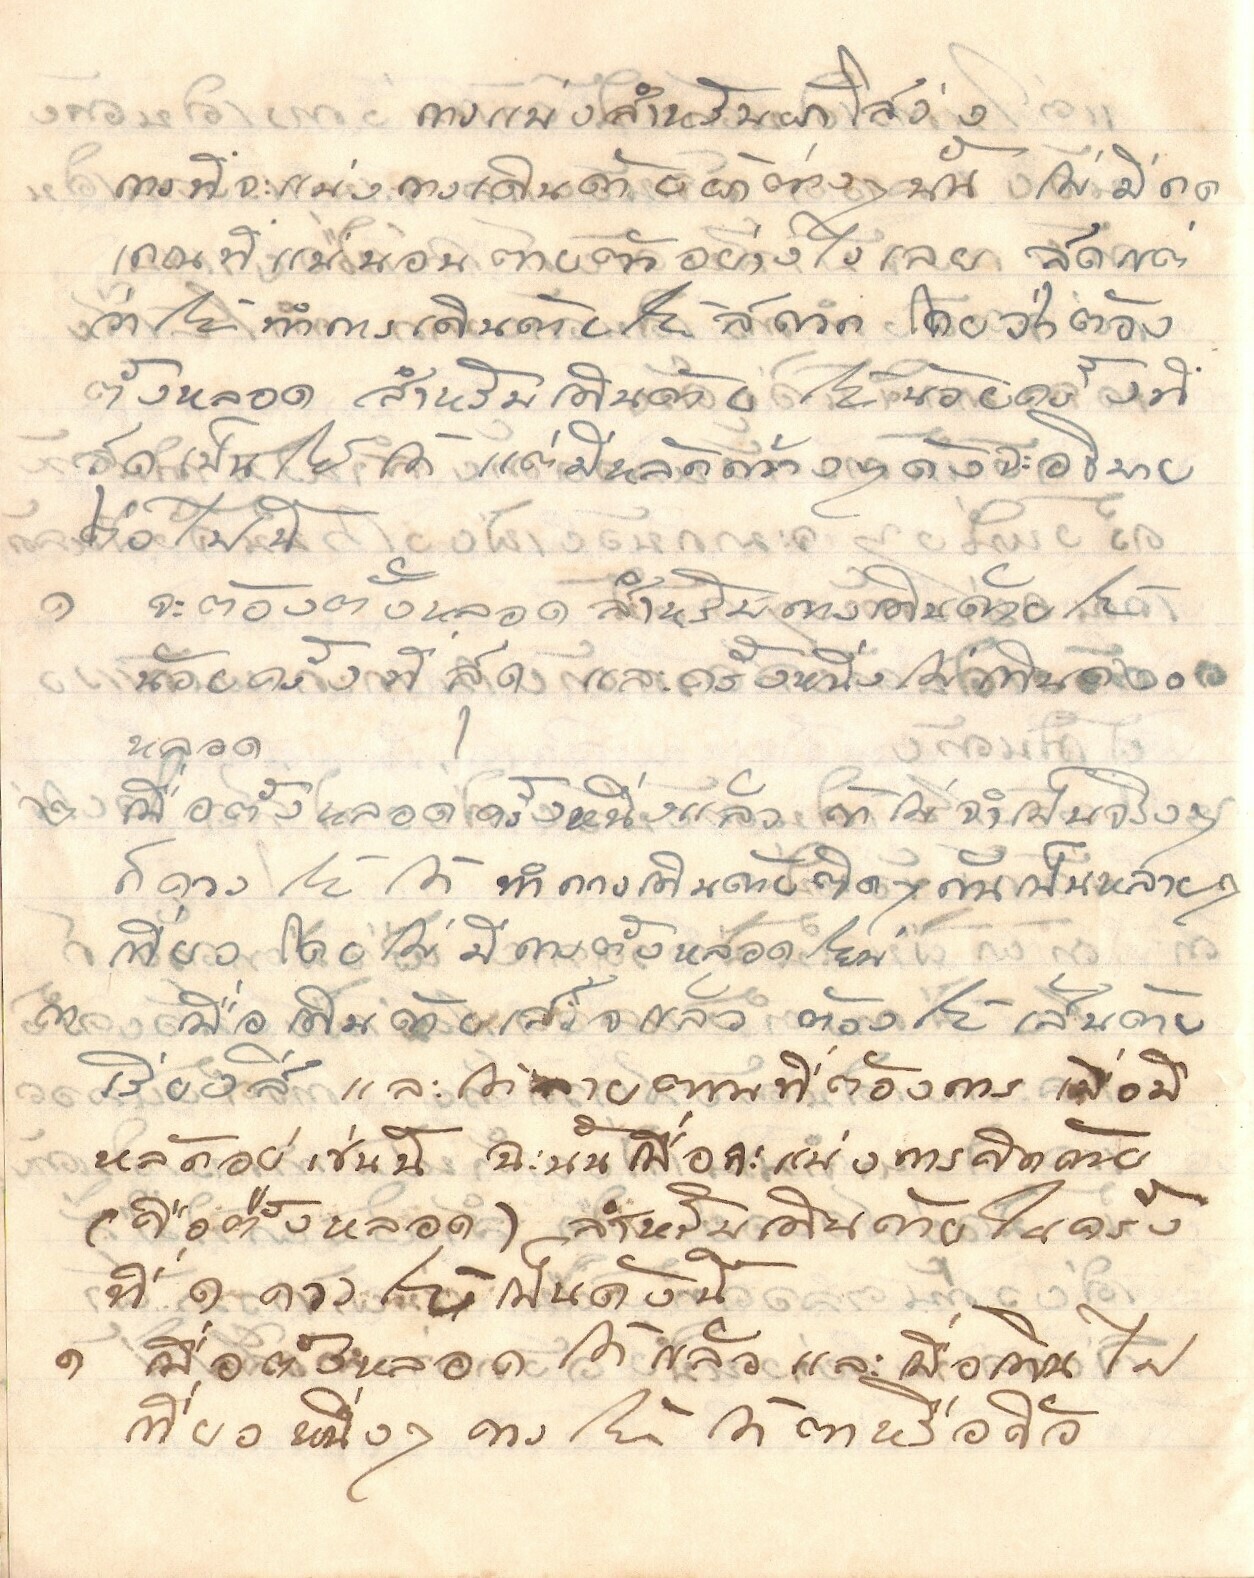 การแบ่งสำหรับผ้าโสร่ง
การที่จะแบ่งการเดินด้ายผ้าต่างๆนั้น ไม่มีกฎ
เกณฑ์แน่นอนตายตัวอย่างไรเลย สุดแต่
ว่าให้ทำการเดินด้ายให้สดวก โดยว่าต้อง
ตั้งหลอด สำหรับเดินด้าย ให้น้อยครั้งที่
สุดเป็นใช้ได้ แต่มีหลักกว้างๆดังจะอธิบาย
ต่อไปนี้
๑ จะต้องตั้งหลอดสำหรับการเดินด้ายให้
น้อยครั้งที่สุด และครั้งหนึ่งไม่เกิน
หลอด
๒ เมื่อตั้งหลอดครั้งหนึ่งแล้ว ถ้าไม่จำเป็นจริงๆ
ก็ควรให้ได้ทำการเดินด้ายติดๆกันเป็นหลายๆ
เที่ยว โดยไม่มีการตั้งหลอดใหม่
๓ เมื่อเดินด้ายเสร็จแล้ว ต้องให้เส้นด้าย
เรียงสี และได้ลายตามที่ต้องการ เมื่อมี
หลักอยู่เช่นนี้ ฉะนั้นเมื่อจะแบ่งการคิดด้าย
(คือตั้งหลอด) สำหรับเดินด้ายในครั้ง
ที่ ๑ ควรให้เป็นดังนี้
๑ เมื่อตั้งหลอดได้แล้ว และเมื่อเดินไป
เที่ยวหนึ่งๆ ควรให้ได้ตาหรือคิ้ว